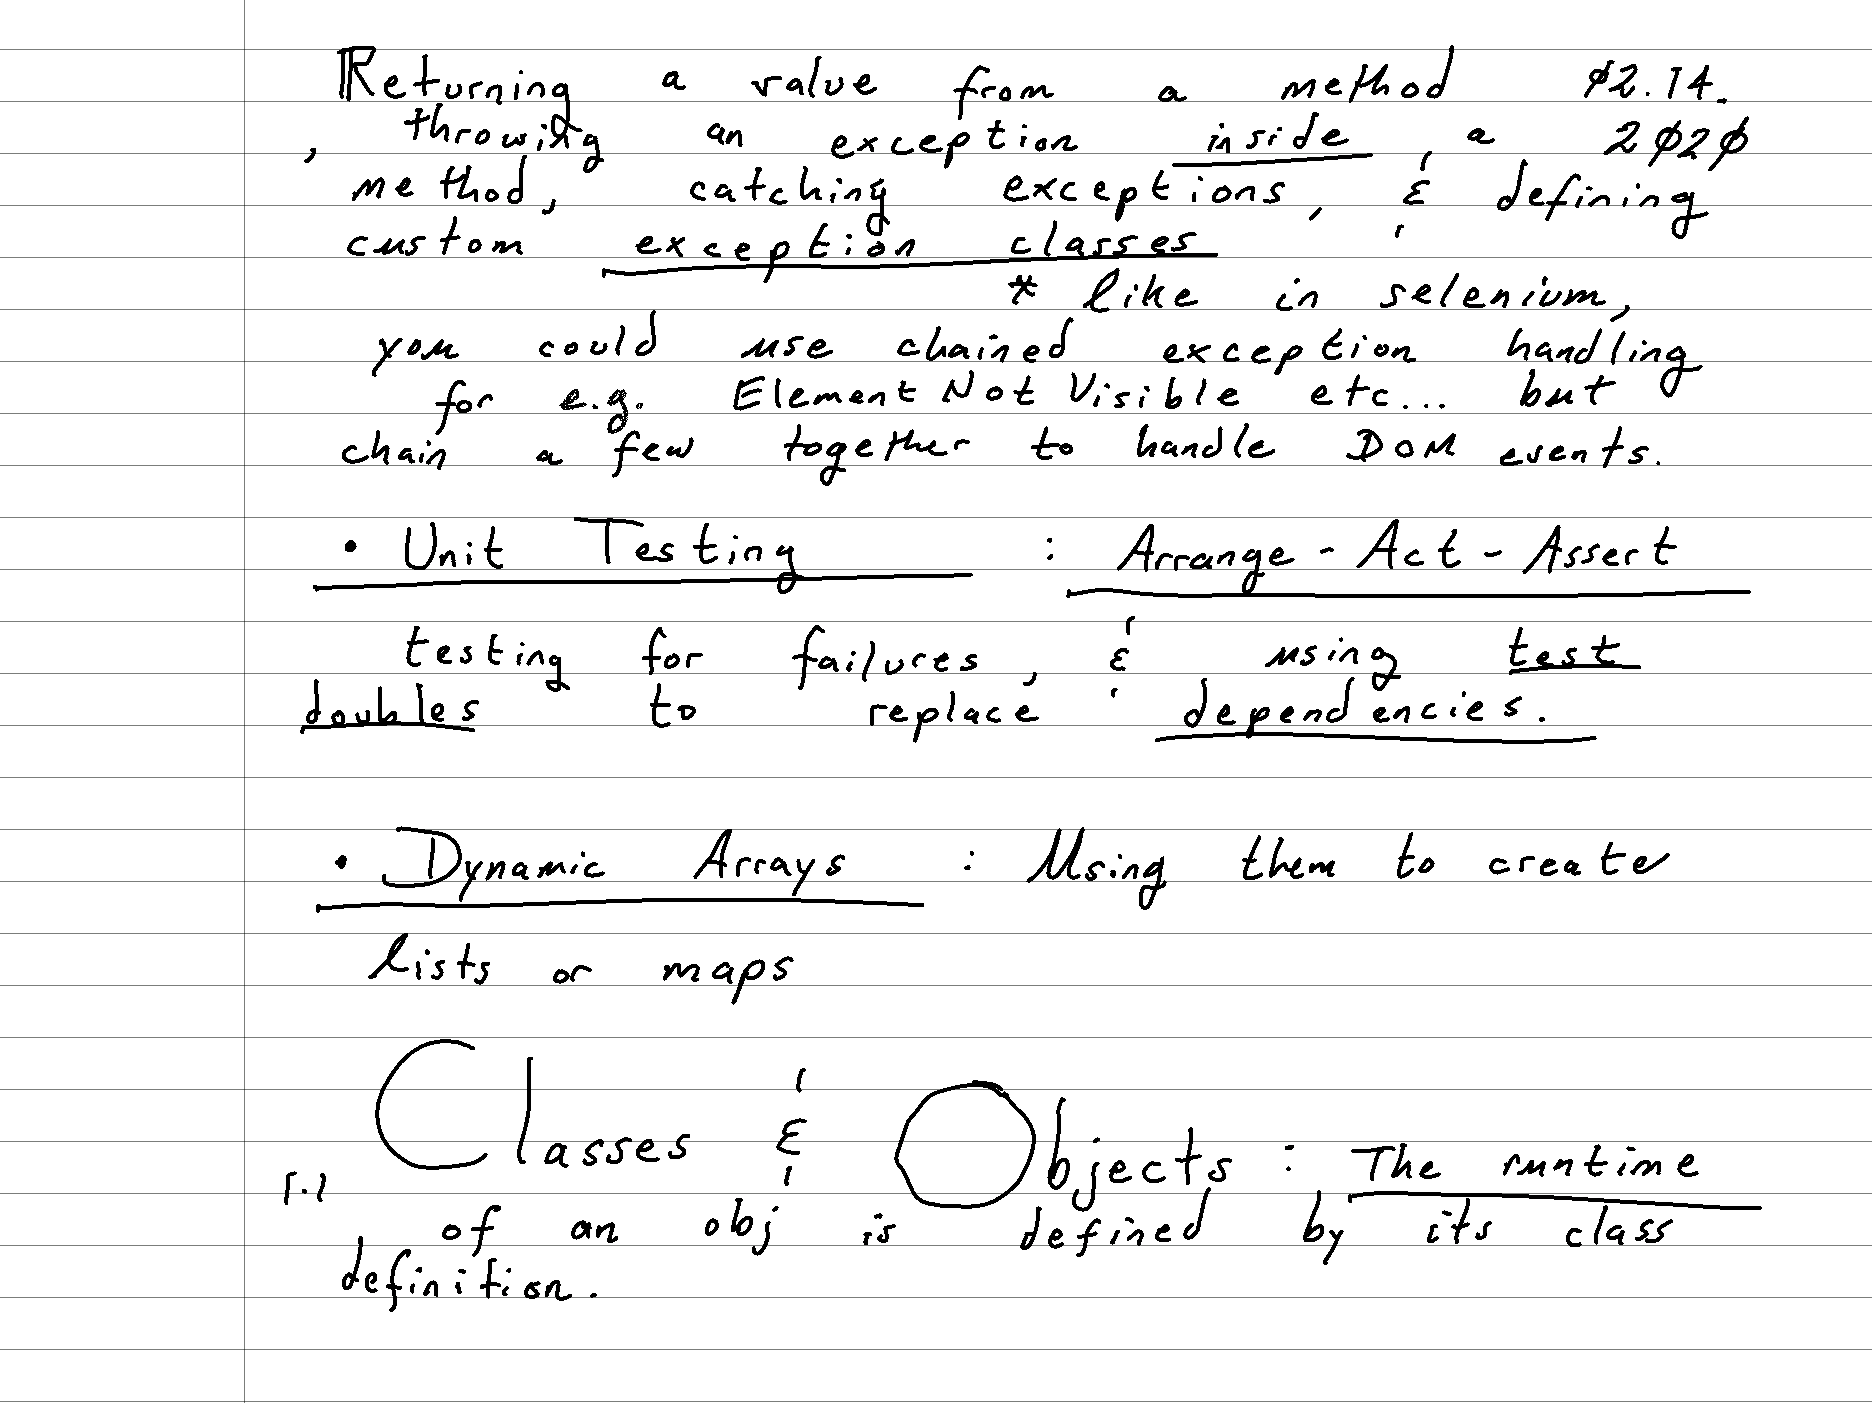 Returning a value from a method 02.14.
, throwing an exception inside a 2020
method, catching exceptions, & defining
custom exception classes
* like in selenium,
you could use chained exception handling
for e.g. Element Not Visible etc... but
chain a few together to handle DOM events.
• Unit Testing : Arrange - Act - Assert
testing for failures, & using test
doubles to replace dependencies.
• Dynamic Arrays : Using them to create
lists or maps
Classes & Objects : The runtime
1.1
of an obj is defined by its class
definition.